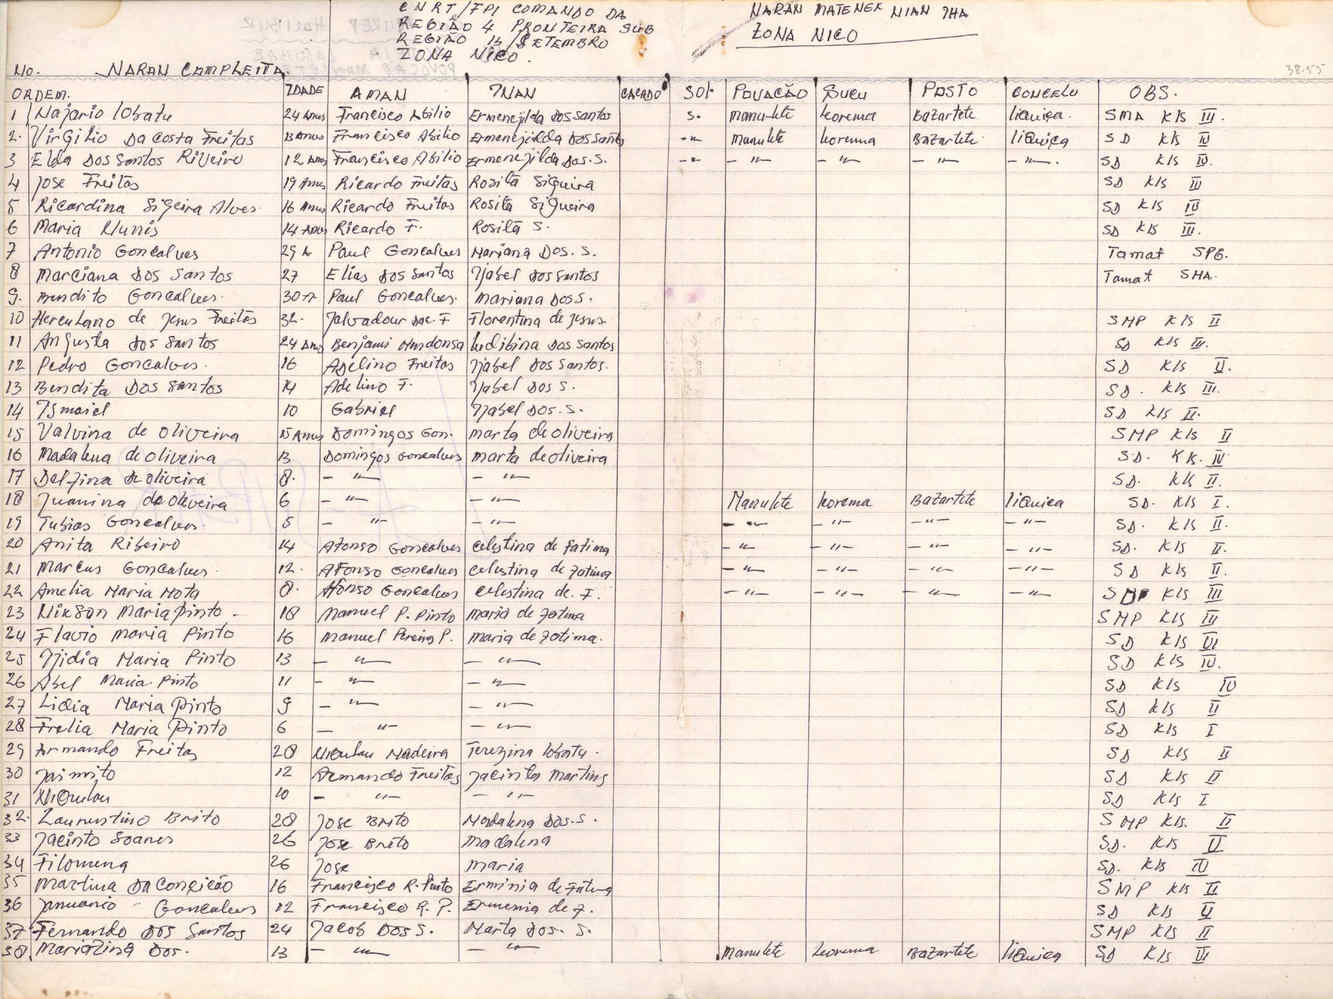 CNRT/FPI COMANDO DA
REGIÃO 4 FRONTEIRA SUB
REGIÃO 15/SETEMBRO
ZONA NICO.
NARAN MATENEK NIAN IHA
ZONA NICO
38.55
No. ORDEM. NARAN COMPLEITA IDADE AMAN INAN CACADO SOL. POVACÃO SUCU POSTO CONCELU OBS.
1 Najario lobatu 24 Anos Francisco Abilio Ermenejilda Dos santos S. Manulete leorema Bazartete liquiça. SMA KLS III.
2. Virgilio Da Costa Freitas 13 Anos Francisco Abilio Ermenejilda Dos santos -"- manulete leorema Bazartete liquiça SD KLS IV
3 Elda Dos Santos Ribeiro 12 Anos Francisco Abilio Ermenejilda Dos. S. -"- -"- -"- -"- -"-. SD KLS IV.
4 Jose Freitas 19 Anos Ricardo Freitas Rosita Siqueira SD KLS III
5 Ricardina Sigeira Alves. 16 Anos Ricardo Freitas Rosita Siqueira SD KLS III
6 Maria Nunis 14 Anos Ricardo F. Rosita S. SD KLS III.
7 Antonio Goncalves 29 A Paul Goncalves Mariana Dos. S. Tamat SPG.
8 Marciana Dos Santos 27 Elias Dos Santos Izabel Dos Santos Tamat SMA.
9. Bendito Goncalves. 30 A Paul Goncalves. Mariana Dos S.
10 Herculano de Jesus Freitas 32. Salvadour Dac F Florentina de Jesus SMP KLS II
11 Angusta Dos Santos 24 Anos Benjami Mendonsa ludibina Dos Santos SD KLS III.
12 Pedro Goncalves. 16 Adelino Freitas Izabel Dos Santos. SD KLS II.
13 Bendita Dos Santos 14 Adelino F. Izabel Dos S. SD. KLS III.
14 Ismaiel 10 Gabriel Izabel Dos. S. SD KLS II.
15 Valvina de oliveira 15 Anos Domingos Gon. marta de oliveira SMP KLS II
16 Madalena de oliveira 13 Domingos Goncalves marta de oliveira SD. KLS. IV
17 Delfina de oliveira 8. -"- -"- SD. KLS II.
18 Juanina de oliveira 6 -"- -"- Manulete leorema Bazartete liquiça SD. KLS I.
19 Tubias Goncalves 5 -"- -"- -"- -"- -"- -"- SD. KLS II.
20 Anita Ribeiro 14 Afonso Goncalves celestina de fatima -"- -"- -"- -"- SD. KLS II.
21 Marcus Goncalves. 12. Afonso Goncalves celestina de fatima -"- -"- -"- -"- SD KLS II.
22 Amelia Maria Mota 8. Afonso Goncalves celestina de. F. -"- -"- -"- -"- SMP KLS III
23 Nikson Maria pinto - 18 Manuel P. Pinto maria de fatima SMP KLS III
24 Flavio Maria Pinto 16 Manuel Pereira P. maria de fatima. SD KLS III
25 Ijidia Maria Pinto 13 -"- -"- SD KLS IV.
26 Abel Maria Pinto 11 -"- -"- SD KLS IV
27 Lidia Maria Pinto 9 -"- -"- SD KLS II
28 Frelia Maria Pinto 6 -"- -"- SD KLS I
29 Armando Freitas 28 Nicolau Madeira Terezina lobatu. SD KLS II
30 Jaimito 12 Armando Freitas Jacinta Martins SD KLS II
31 Niqulau 10 -"- -"- SD KLS I
32. Laurentino Brito 28 Jose Brito Madalena Dos. S. SMP KLS. II
33 Jacinto Soares 26 Jose Brito Madalena SD. KLS II
34 Filomena 26 Jose maria SD. KLS IV
35 Martina Da Conçeicão 16 Francisco R. Pinto Erminia de Fatima SMP KLS II
36 Januario Goncalves 12 Francisco R. P. Ermenia de F. SD KLS II
37 Fernando Dos Santos 24 Jacob Dos S. Marta Dos. S. SMP KLS II
38 Mariazina Dos. 13 -"- -"- Manulete leorema Bazartete liquiça SD KLS III